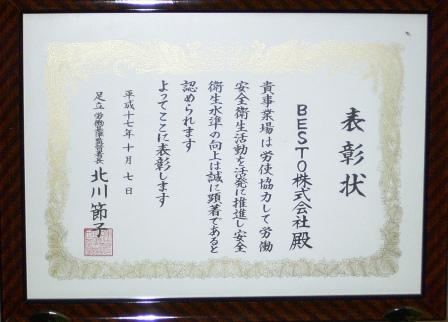 表彰状
BESTO株式会社殿
貴事業場は労使協力して労働
安全衛生活動を活発に推進し安全
衛生水準の向上は誠に顕著であると
認められます
よってここに表彰します
平成十七年十月七日
足立労働基準監督署長 北川節子